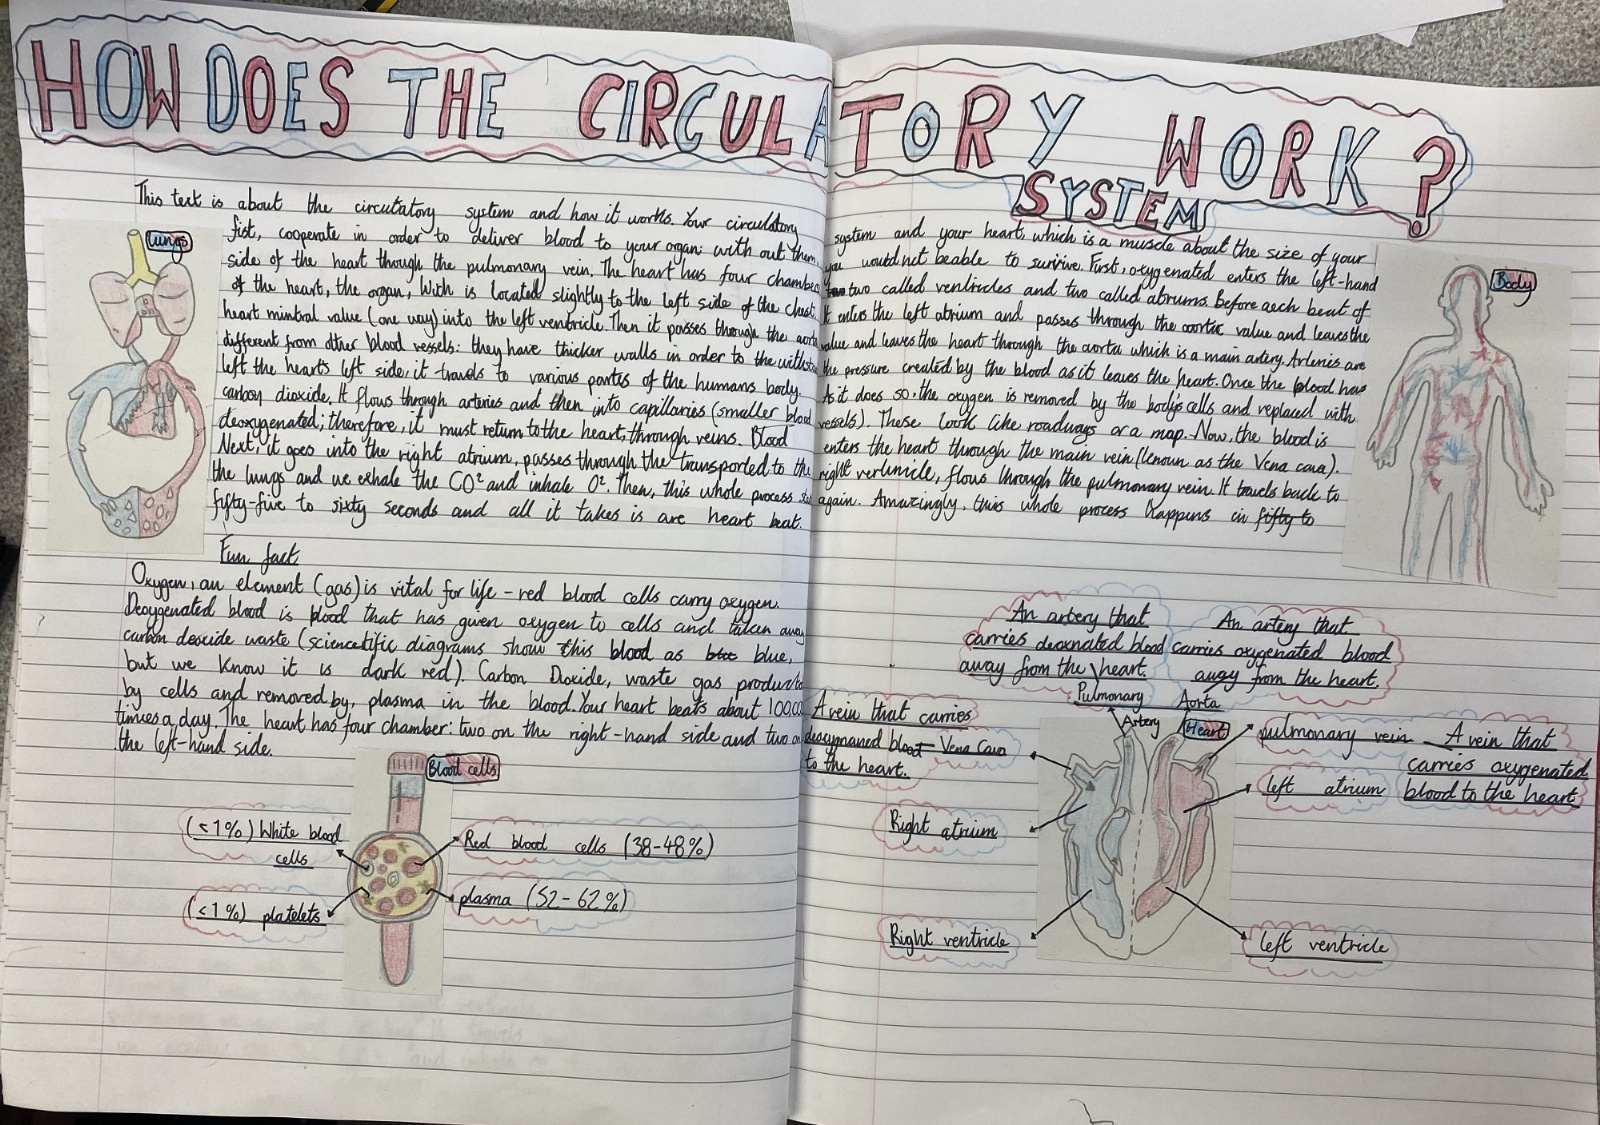 HOW DOES THE CIRCULATORY WORK?
SYSTEM
This text is about the circutatory system and how it works. Your circulatory system and your heart, which is a muscle about the size of your
fist, cooperate in order to deliver blood to your organ; with out them, you would not beable to survive. First, oxygenated enters the left-hand
side of the heart though the pulmonary vein. The heart has four chambers two called ventricles and two called abrums. Before each beat of
of the heart, the organ, Wich is located slightly to the left side of the chest. It enters the left atrium and passes through the aortic value and leaves the
heart mintral value (one way) into the left ventricle. Then it passes through the aorta value and leaves the heart through the aorta which is a main artery. Arteries are
different from other blood vessels: they have thicker walls in order to the withstand the pressure created by the blood as it leaves the heart. Once the blood has
left the hearts left side, it travels to various partes of the humans body. As it does so, the oxygen is removed by the body's cells and replaced with
carbon dioxide. It flows through arteries and then into capillaries (smaller blood vessels). These look like roadways or a map. Now, the blood is
deoxygenated; therefore, it must return to the heart, through veins. Blood enters the heart through the main vein (lenoun as the Vena cava).
Next, it goes into the right atrium, passes through the transported to the right vertinicle, flows through the pulmonary vein. It travels back to
the lungs and we exhale the CO² and inhale O². Then, this whole process again. Amazingly, this whole process happens in fifty to
fifty-five to sixty seconds and all it takes is are heart beat.
Lungs
Body
Fun fact
Oxygen, an element (gas) is vital for life - red blood cells carry oxygen.
Deoygenated blood is blood that has given oxygen to cells and taken away
carbon deoxide waste (sciencetific diagrams show this blood as blue,
but we know it is dark red). Carbon Dioxide, waste gas
by cells and removed by, plasma in the blood. Your heart beats about
times a day. The heart has four chamber: two on the right-hand side and two on
the left-hand side.
Blood cells
(<1%) White blood
cells
Red blood cells (38-48%)
(<1%) platelets
plasma (52-62%)
An artery that
carries deoxnated blood
away from the heart.
Pulmonary
Artery
An artery that
carries oxygenated blood
away from the heart.
Aorta
Heart
A vein that carries
deoxygnaned blood
to the heart.
Vena Cava
pulmonary vein
A vein that
carries oxygenated
blood to the heart
left atrium
Right atrium
Right ventricle
left ventricle